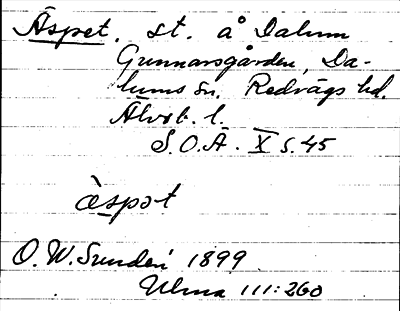 Äspet. st. å Dalum
Gunnarsgården, Da-
lums sn. Redvägs hd.
Älvsb. l.
S.O.Ä. X s. 45
àspət
O. W. Sundén 1899
Ulma 111:260